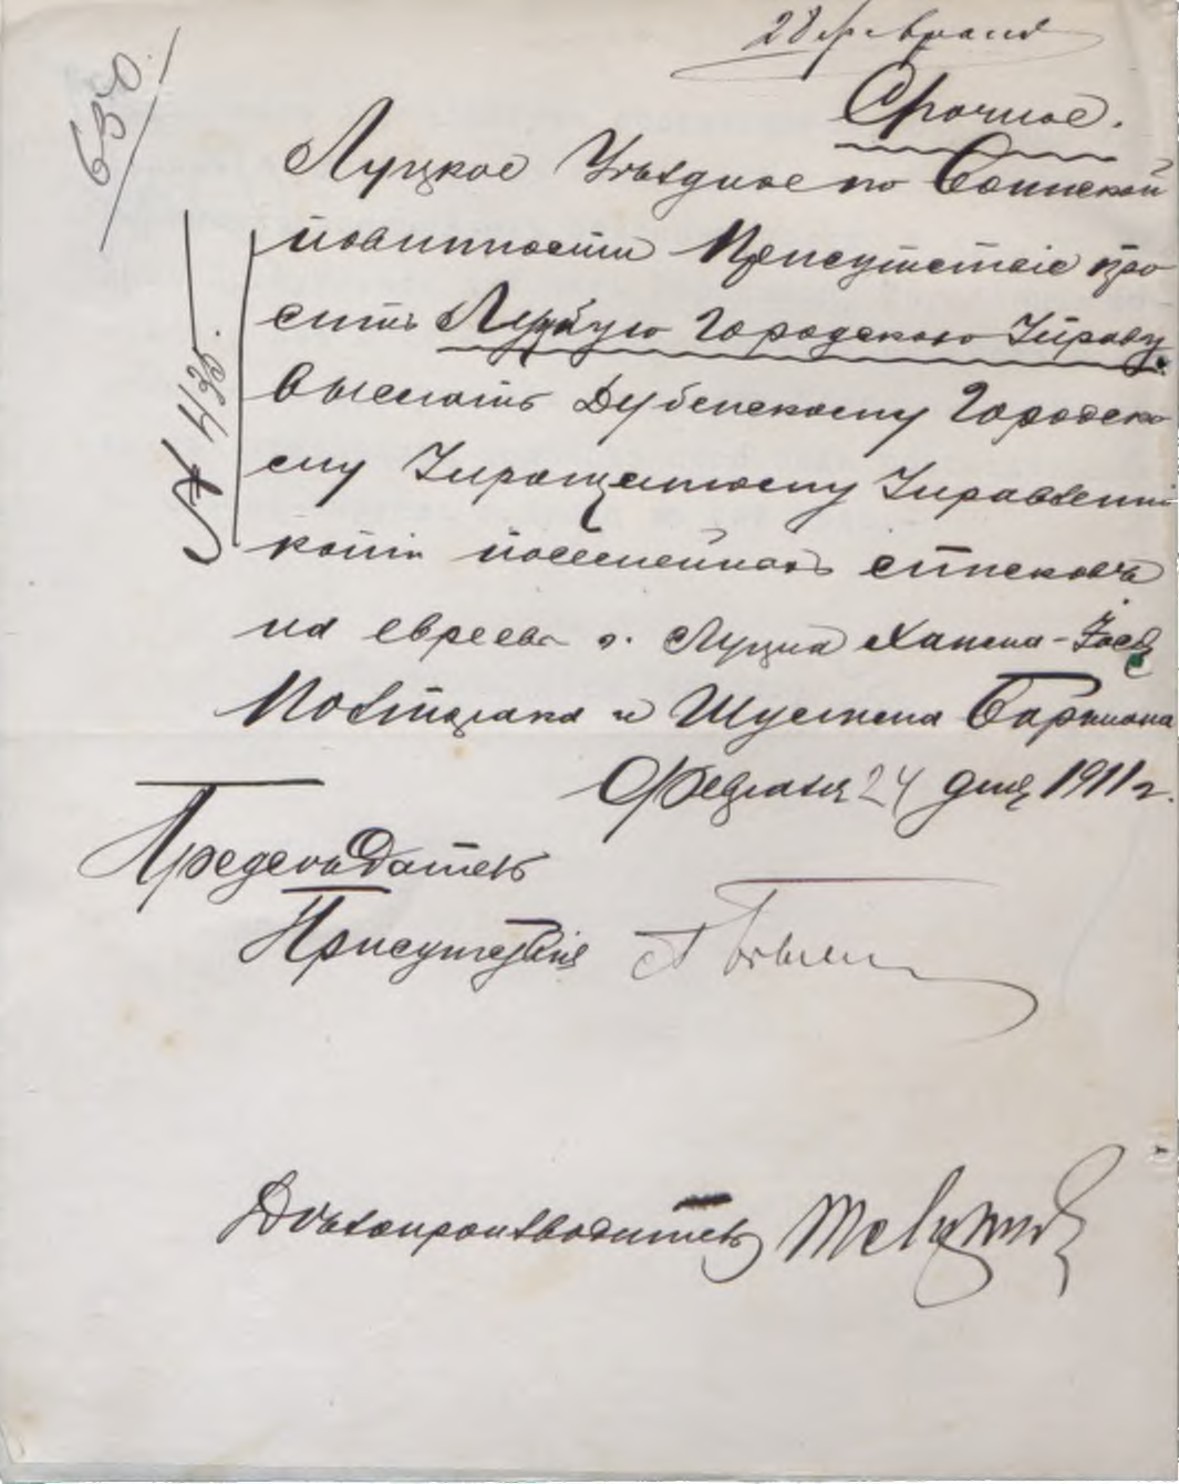 28 февраля
650.
Срочное.
Луцкое Уѣздное по Воинской
повинности Присутствіе про
ситъ Луцкую Городскую Управу
выслать Дубенскому Городско
му Упрощенному Управленію
копіи посемейныхъ списковъ
на евреевъ г. Луцка
и Шустена
Февраля 24 дня 1911 г.
№ 435.
Предсѣдатель
Присутствія
Дѣлопроизводитель